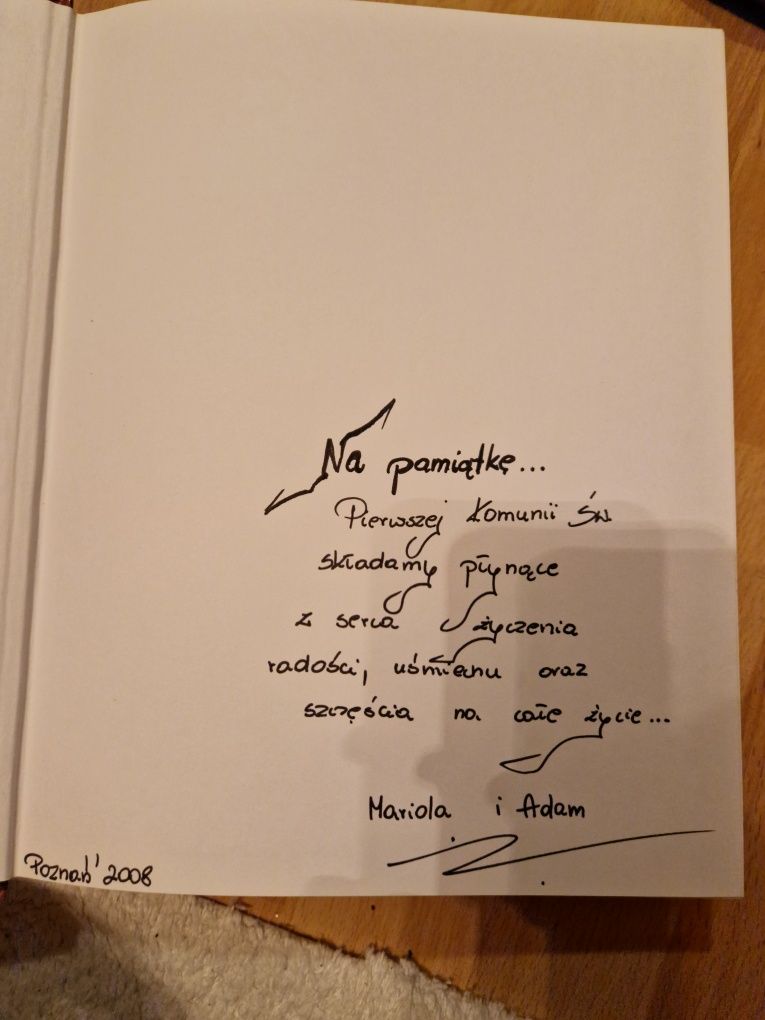 Na pamiątkę...
Pierwszej Komunii Św.
składamy płynące
z serca życzenia
radości, uśmiechu oraz
szczęścia na całe życie...
Mariola i Adam
Poznań 2008